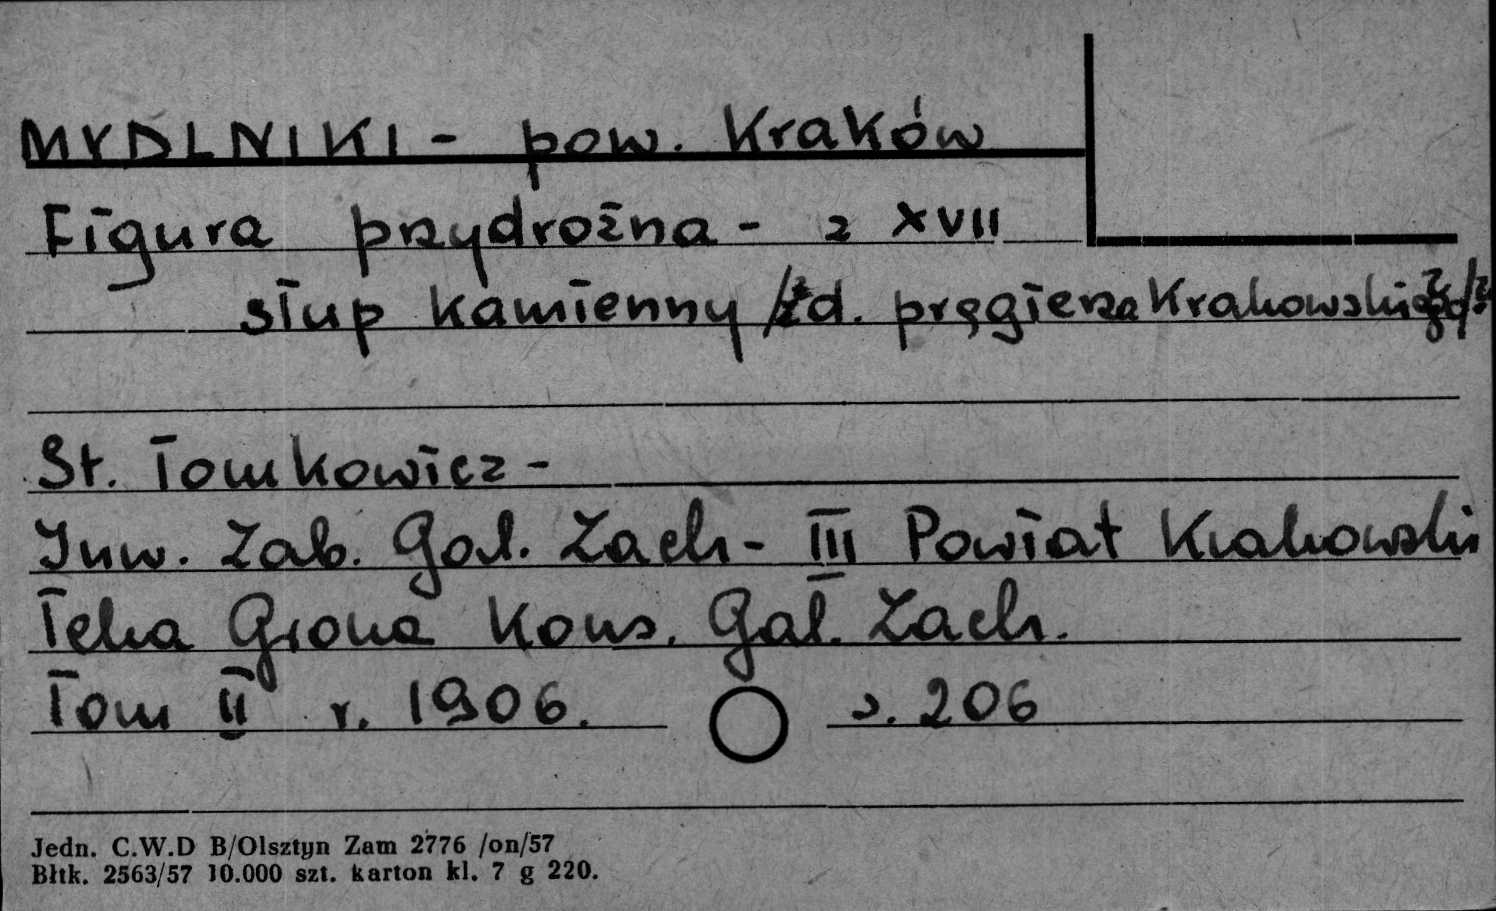 MYDLNIKI - pow. Kraków
Figura przydrożna - z XVII
słup kamienny /żd. pręgierza Krakowskiego/
St. Tomkowicz -
Inw. Zab. Gal. Zach - III Powiat Krakowski
Teka Grona Kons. Gal. Zach.
Tom II r. 1906. s. 206
Jedn. C.W.D B/Olsztyn Zam 2776 /on/57
Błtk. 2563/57 10.000 szt. karton kl. 7 g 220.